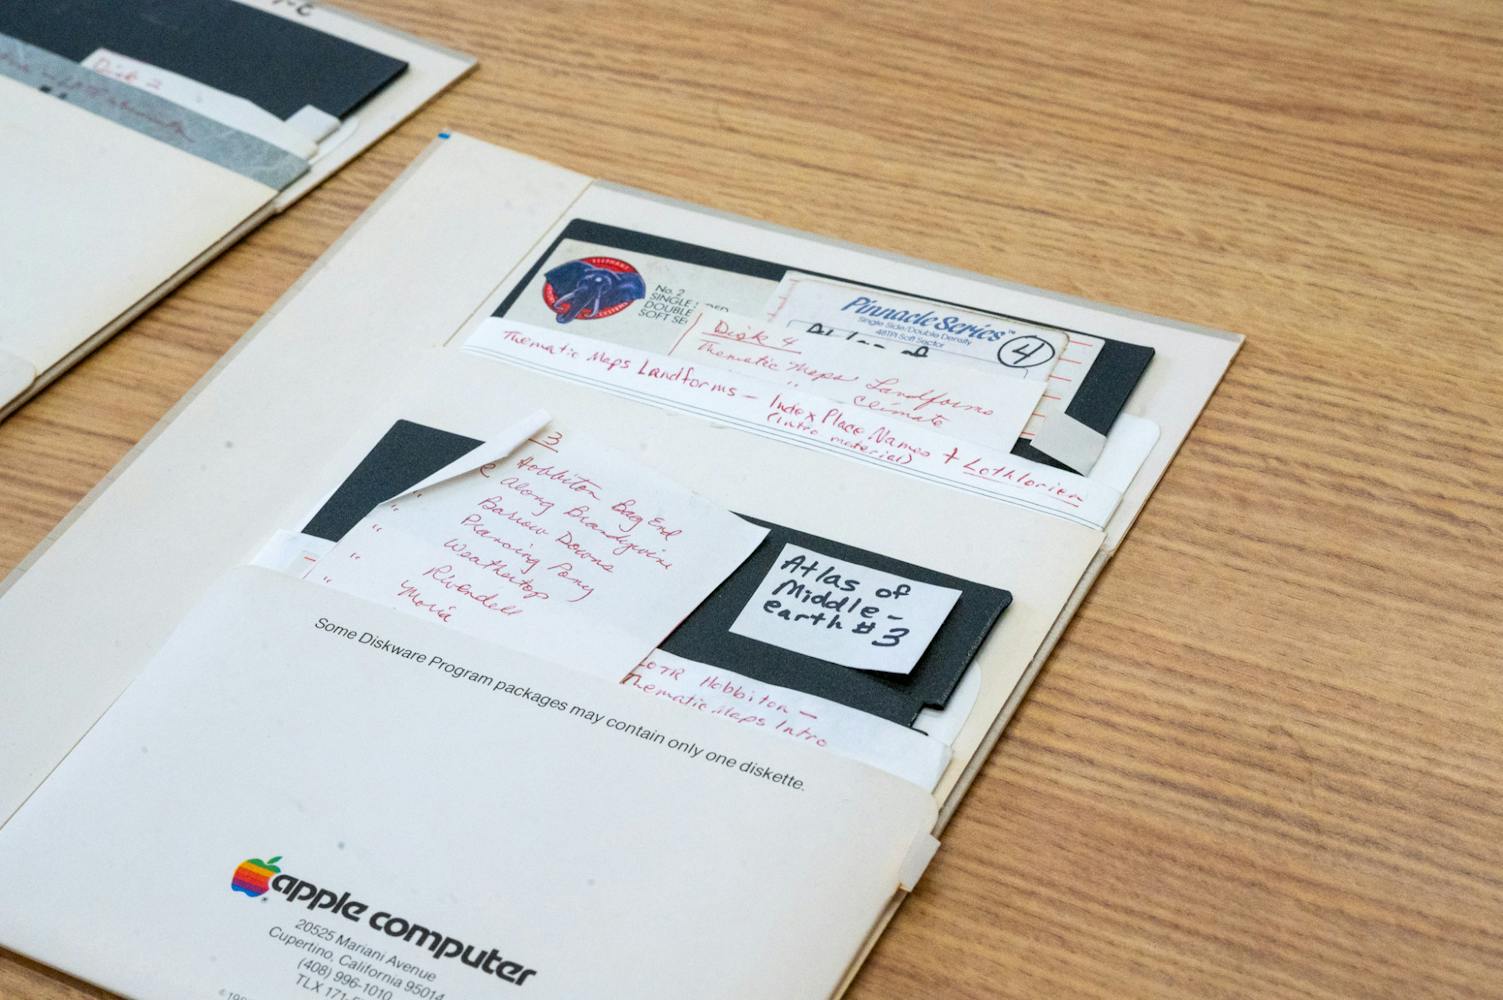 Disk 2
ELEPHANT
No. 2
SINGLE
DOUBLE
SOFT SE
Pinnacle Series™
Single Side/Double Density
48TPI Soft Sector
4
Atlas of
Disk 4
Thematic Maps Landforms
" Climate
Thematic Maps Landforms – Index Place Names + Lothlorien
(intro material)
3
Hobbiton Bag End
Along Brandywine
" Barrow Downs
" Prancing Pony
" Weathertop
" Rivendell
Moria
Atlas of
Middle-
earth #3
LOTR Hobbiton –
Thematic Maps Intro
Some Diskware Program packages may contain only one diskette.
apple computer
20525 Mariani Avenue
Cupertino, California 95014
(408) 996-1010
TLX 171-5